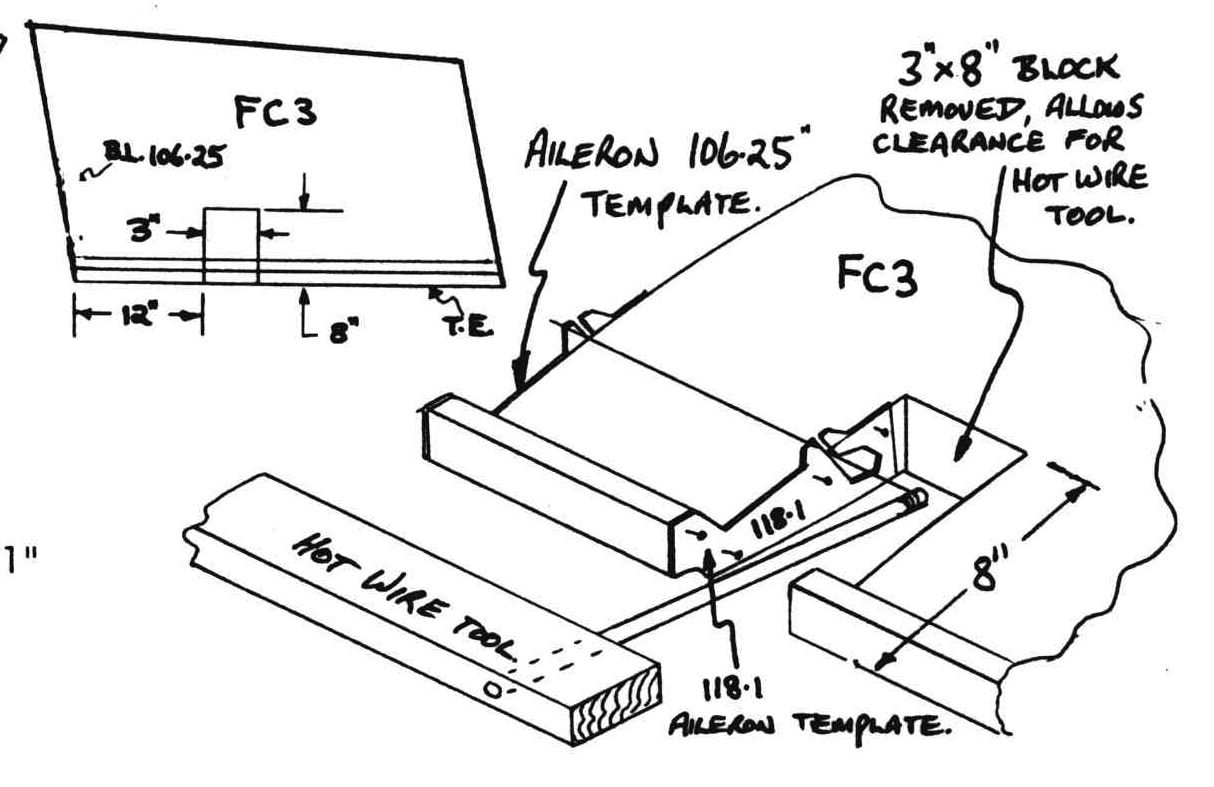 FC3
B.L. 106.25
3"
12"
8"
T.E.
AILERON 106.25"
TEMPLATE.
3"x8" BLOCK
REMOVED, ALLOWS
CLEARANCE FOR
HOT WIRE
TOOL.
FC3
1"
118.1
8"
HOT WIRE TOOL.
118.1
AILERON TEMPLATE.